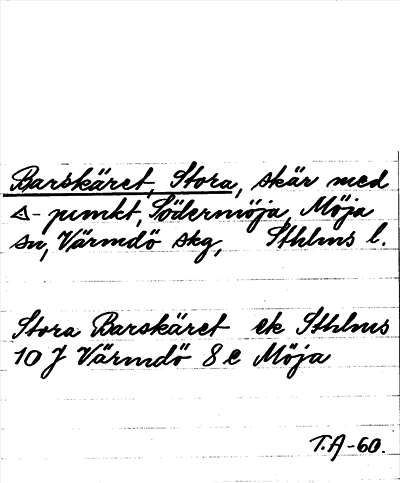 Barskäret, Stora, skär med
◬-punkt, Södermöja, Möja
sn, Värmdö skg, Sthlms l.
Stora Barskäret ek Sthlms
10 J Värmdö 8 e Möja
T.A-60.